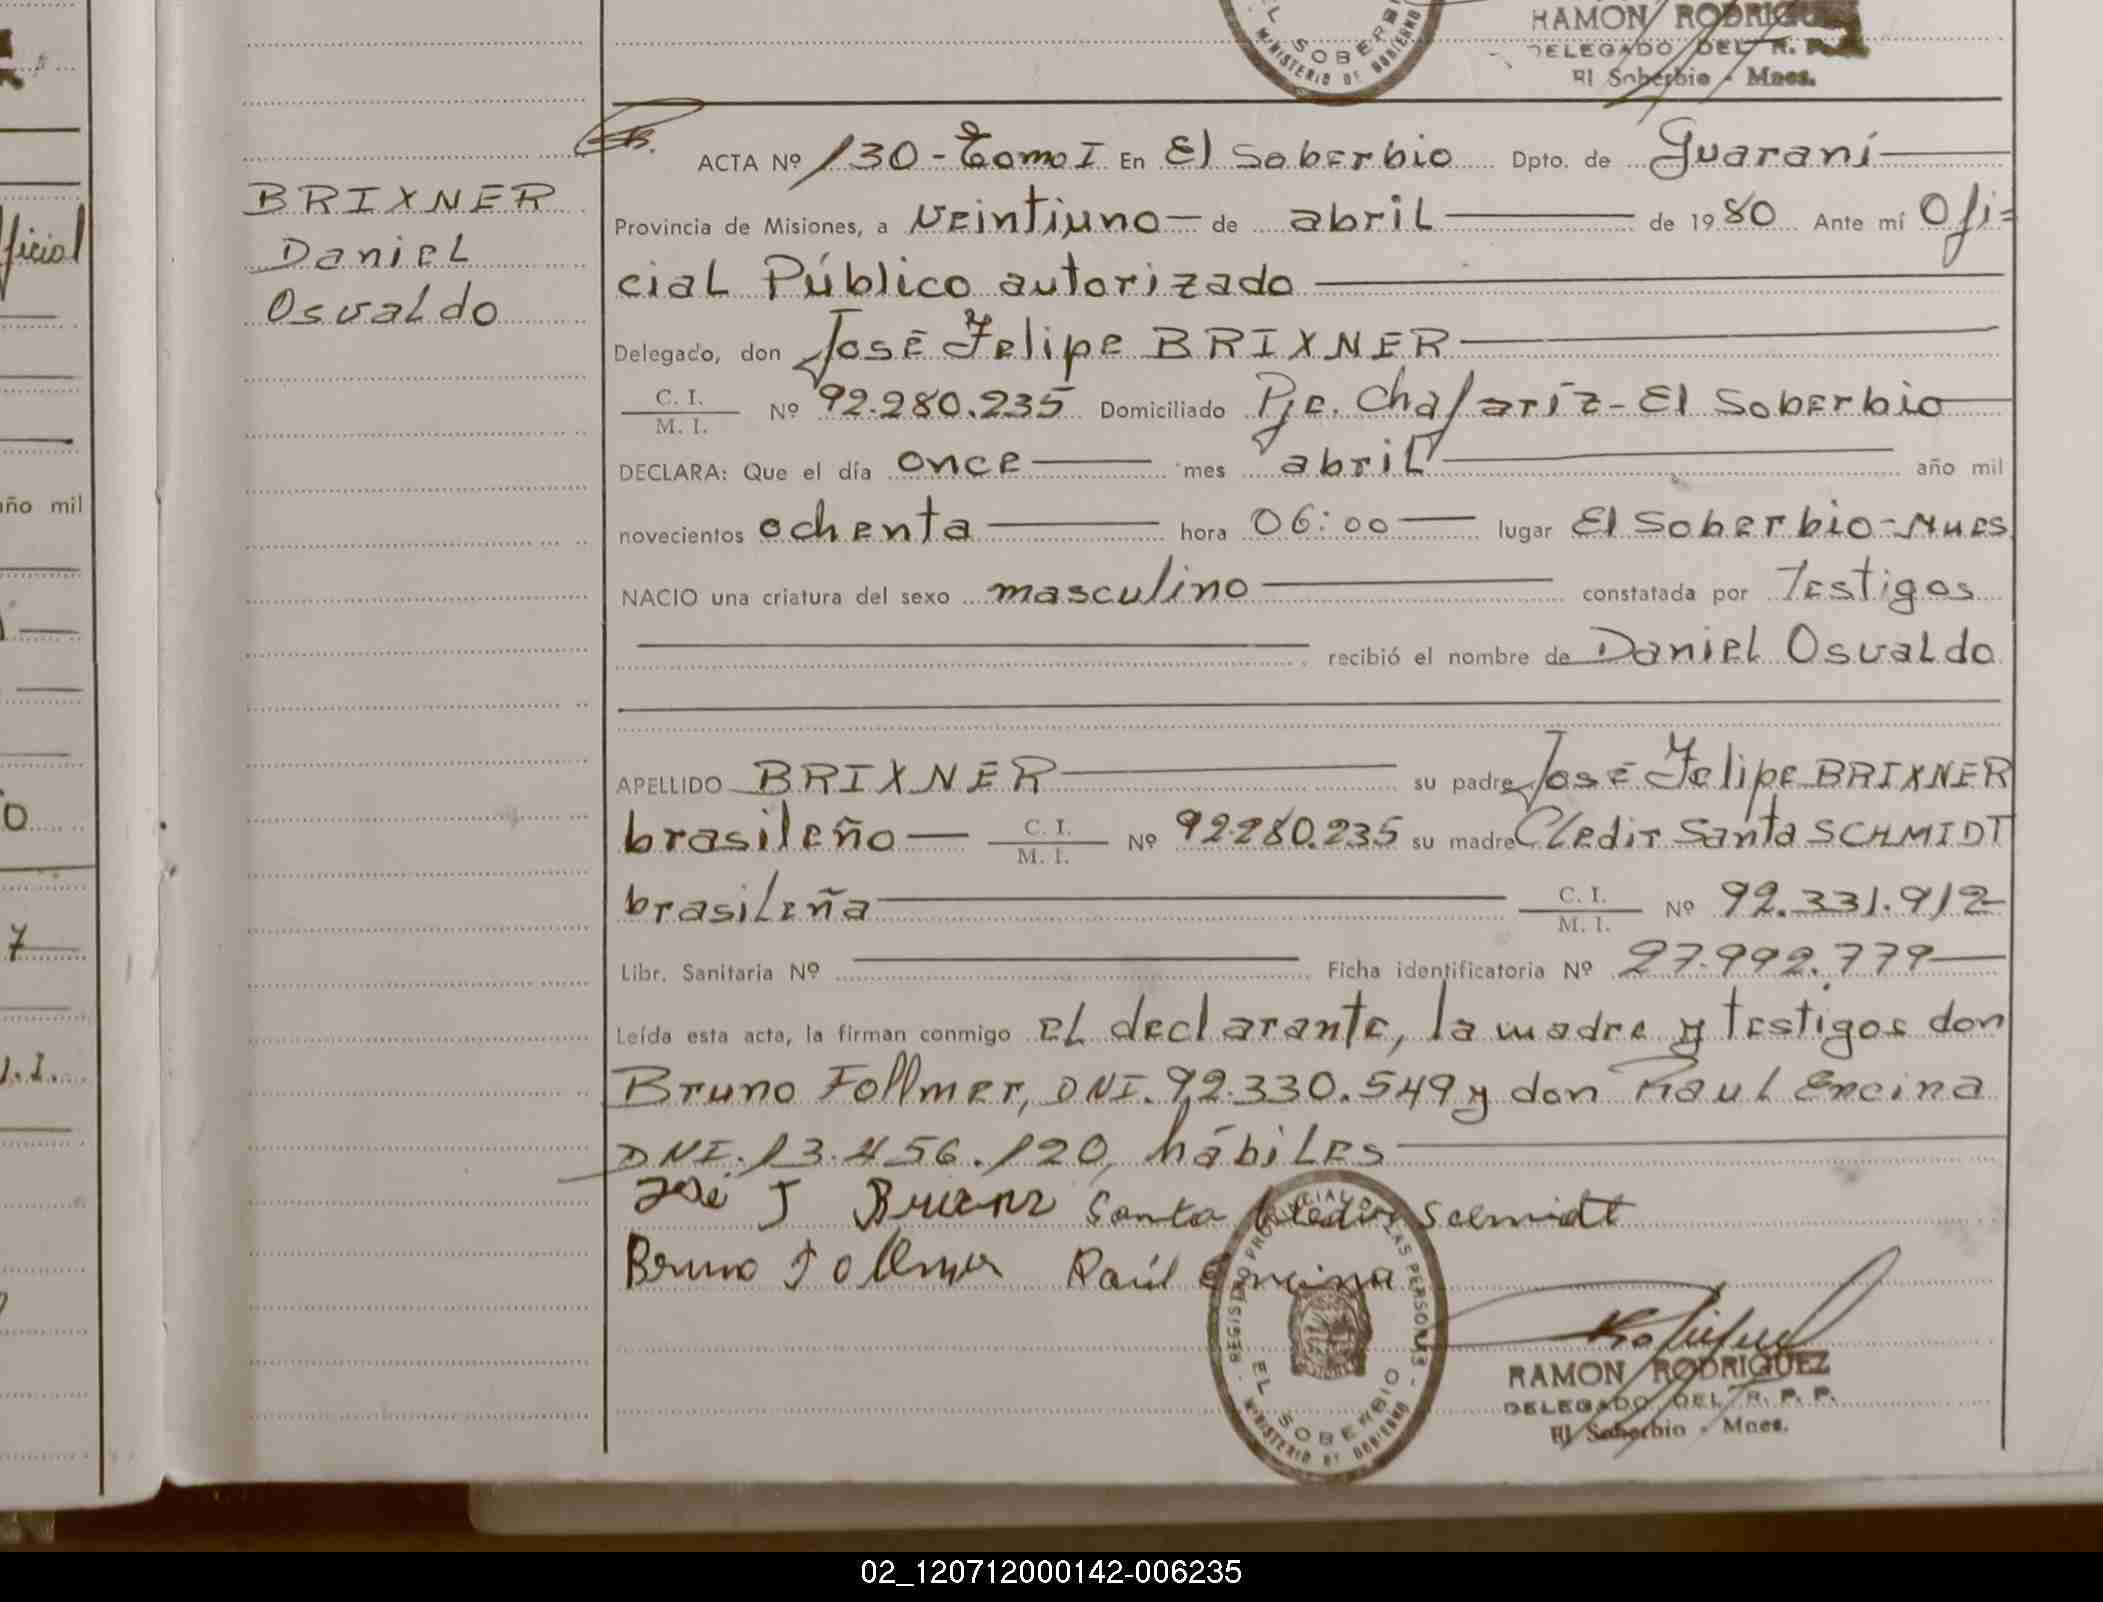 RAMON RODRIGUEZ
DELEGADO DEL R. P.
El Soberbio - Mnes.
EL SOBERBIO
MINISTERIO DE GOBIERNO
ficial
año mil
O
7
.I.
BRIXNER
Daniel
Osvaldo
ACTA Nº 130 - Tomo I En El Soberbio Dpto. de Guaraní
Provincia de Misiones, a veintiuno de abril de 1980 Ante mí Ofi=
cial Público autorizado
Delegado, don José Felipe BRIXNER
C. I. / M. I. Nº 92.280.235 Domiciliado Pje. Chafariz - El Soberbio
DECLARA: Que el día once mes abril año mil
novecientos ochenta hora 06:00 lugar El Soberbio - Mnes
NACIO una criatura del sexo masculino constatada por Testigos
recibió el nombre de Daniel Osvaldo
APELLIDO BRIXNER su padre José Felipe BRIXNER
brasileño C. I. / M. I. Nº 92.280.235 su madre Cledir Santa SCHMIDT
brasileña C. I. / M. I. Nº 92.331.912
Libr. Sanitaria Nº Ficha identificatoria Nº 27.992.779
Leída esta acta, la firman conmigo el declarante, la madre y testigos don
Bruno Follmer, DNI. 92.330.549 y don Raul Encina
DNI. 13.456.120, hábiles
José F Brixner Santa Cledir Schmidt
Bruno Follmer Raúl Encina
REGISTRO PROVINCIAL DE LAS PERSONAS
EL SOBERBIO
MINISTERIO DE GOBIERNO
RAMON RODRIGUEZ
DELEGADO DEL R. P. P.
El Soberbio - Mnes.
02_120712000142-006235